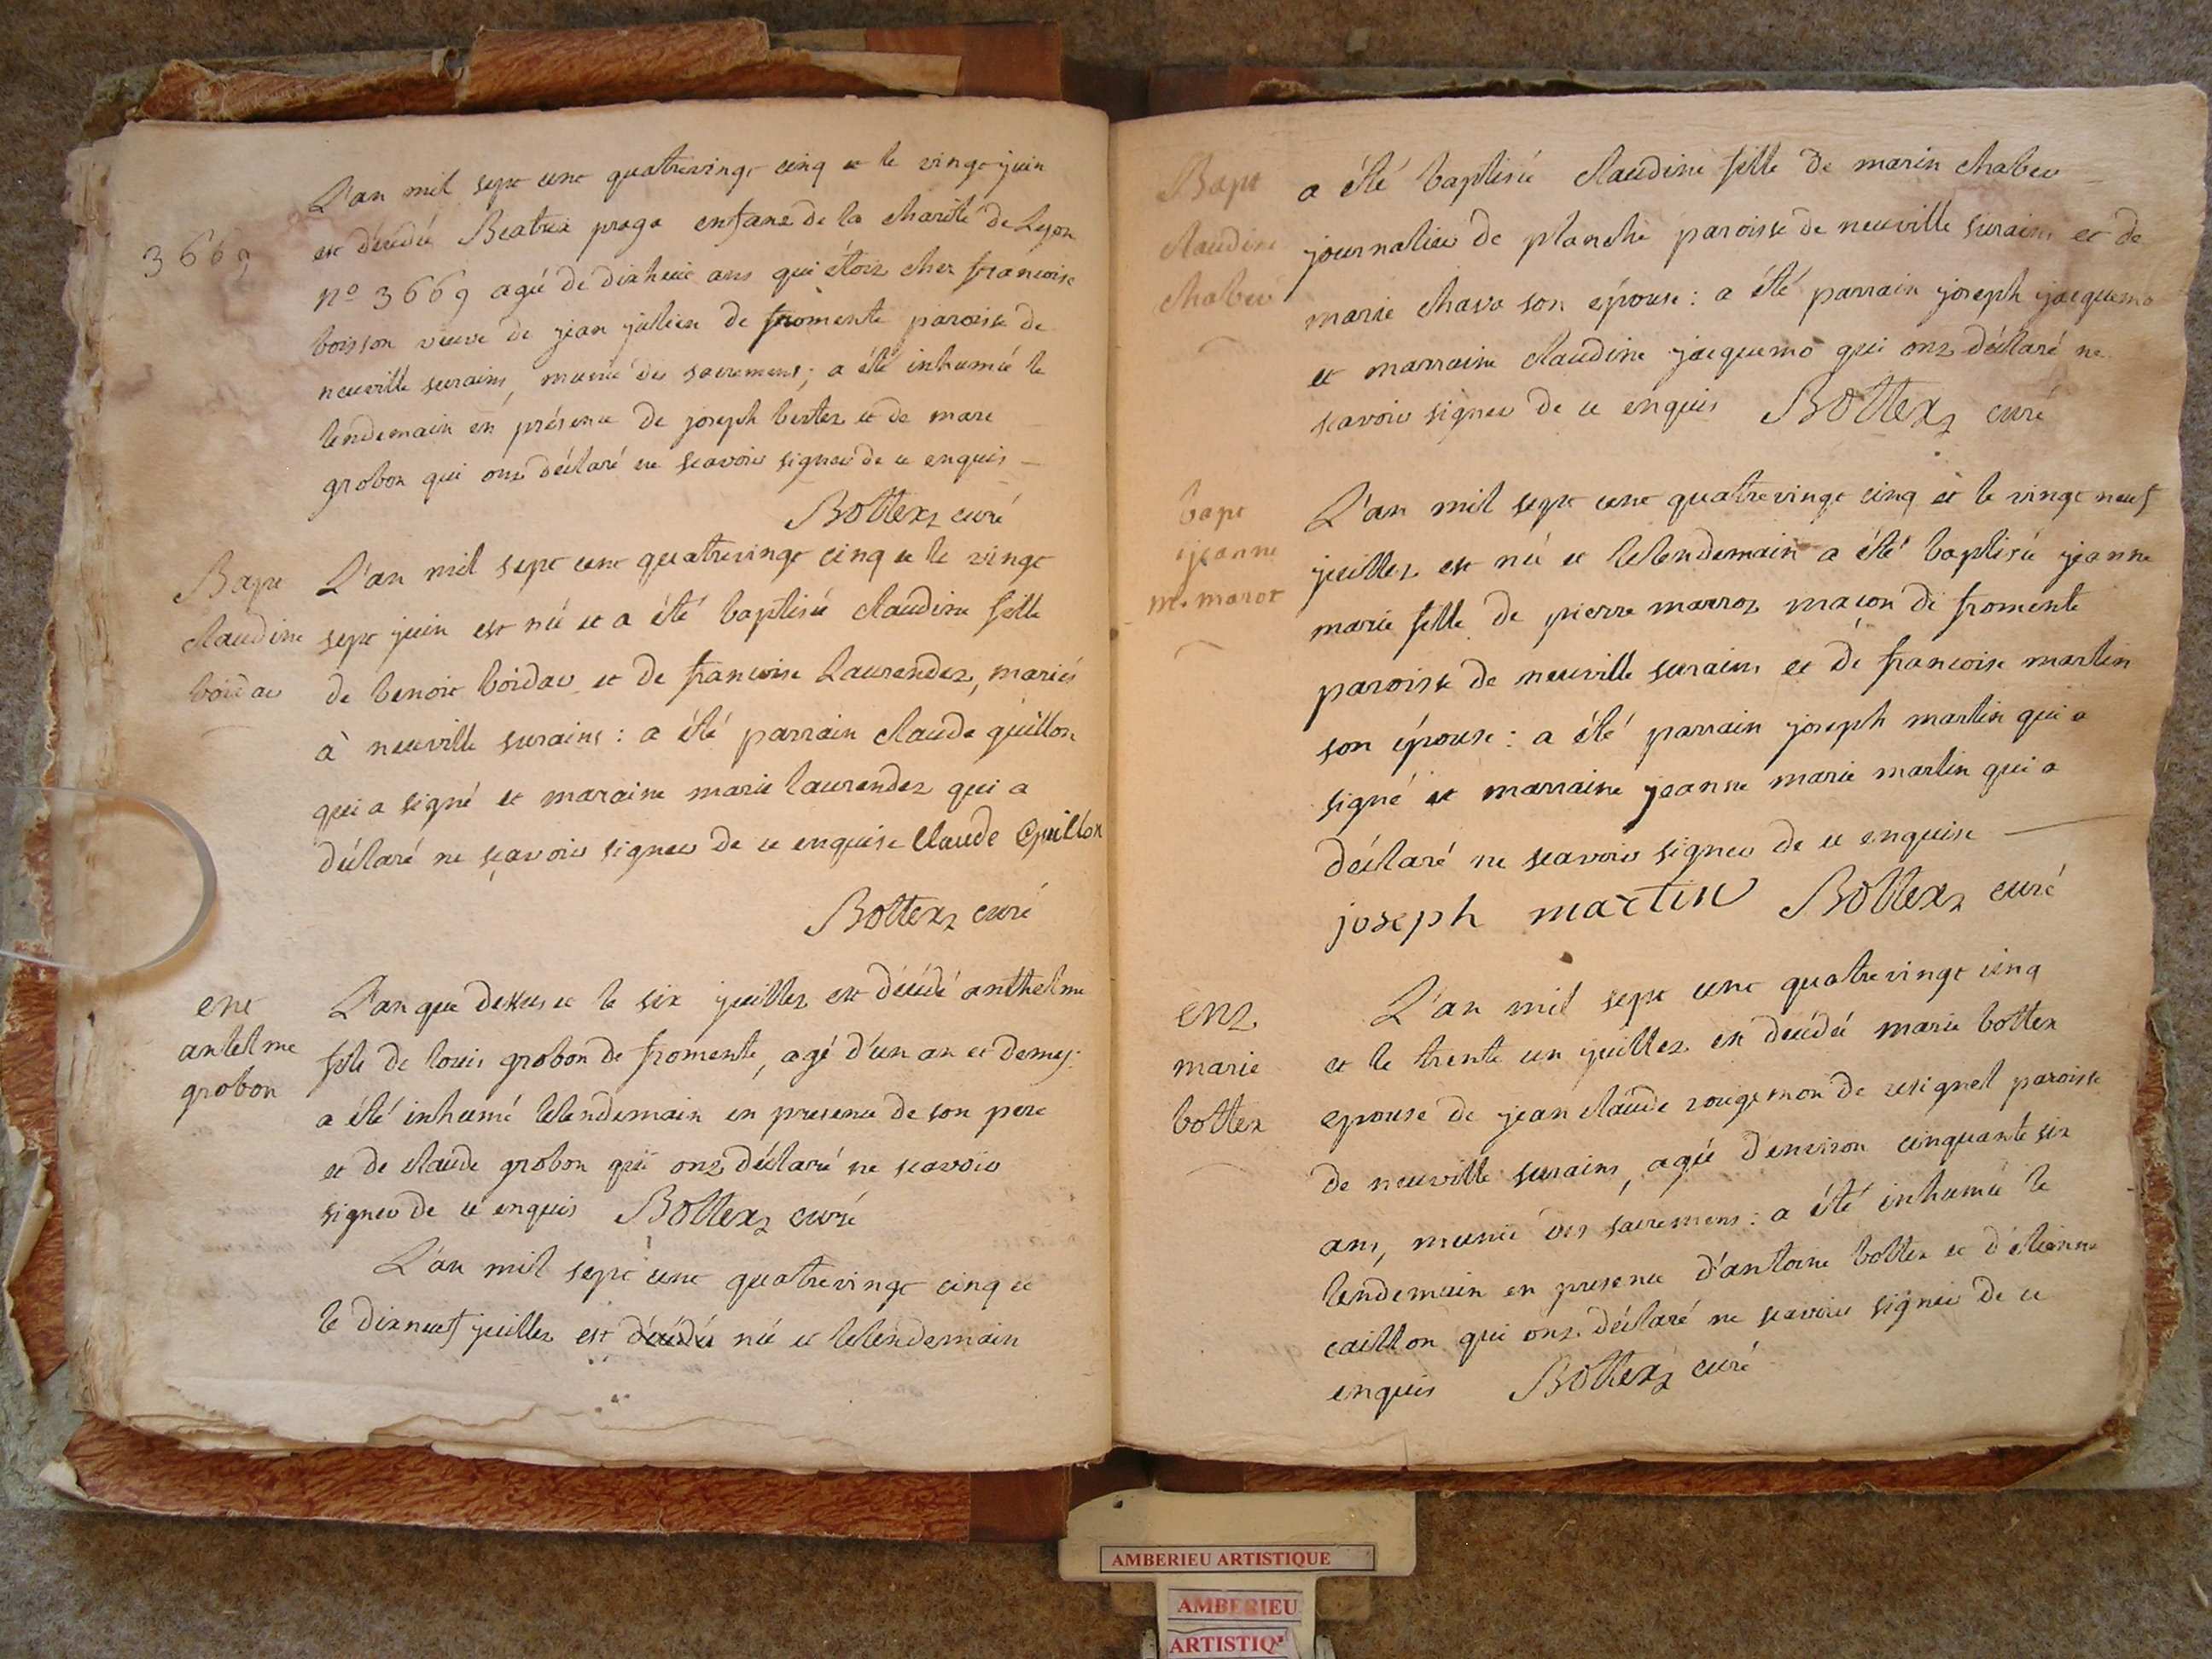 3669
L'an mil sept cent quatrevingt cinq et le vingt juin
est décédée Beatrix praga enfant de la charité de Lyon
n° 3669 agée de dixhuit ans qui étoit chez françoise
boisson veuve de jean jullien de fromente paroisse de
neuville surains, munie des sacremens; a été inhumée le
lendemain en présence de joseph bertet et de marc
grobon qui ont déclaré ne scavoir signer de ce enquis
Bottex, curé
Bapt
claudine
boidac
L'an mil sept cent quatrevingt cinq et le vingt
sept juin est née et a été baptisée claudine fille
de benoit boidac et de francoise Laurendet, mariés
à neuville surains: a été parrain claude guillon
qui a signé et maraine marie laurendet qui a
déclaré ne scavoir signer de ce enquise Claude Guillon
Bottex, curé
ent
antelme
grobon
L'an que dessus et le six juillet est décédé anthelme
fils de louis grobon de fromente, agé d'un an et demy:
a été inhumé lelendemain en presence de son pere
et de claude grobon qui ont déclaré ne scavoir
signer de ce enquis Bottex, curé
L'an mil sept cent quatrevingt cinq et
le dixneuf juillet est décédée née et lelendemain
Bapt
claudine
chabeu
a été baptisée claudine fille de marin chabeu
journalier de planche paroisse de neuville surains et de
marie chava son épouse: a été parrain joseph jacquemo
et marraine claudine jacquemo qui ont déclaré ne
scavoir signer de ce enquis Bottex, curé
bapt
jeanne
m. marot
L'an mil sept cent quatrevingt cinq et le vingt neuf
juillet est née et lelendemain a été baptisée jeanne
marie fille de pierre marrot maçon de fromente
paroisse de neuville surains et de francoise martin
son épouse: a été parrain joseph martin qui a
signé et marraine jeanne marie martin qui a
déclaré ne scavoir signer de ce enquise
joseph martin Bottex, curé
ent.
marie
bottex
L'an mil sept cent quatrevingt cinq
et le trente un juillet est décédée marie bottex
epouse de jean claude rougemon de resignel paroisse
de neuville surains, agée d'environ cinquante six
ans, munie des sacremens: a été inhumée le
lendemain en presence d'antoine bottex et d'étienne
caillon qui ont déclaré ne scavoir signer de ce
enquis Bottex, curé
AMBERIEU ARTISTIQUE
AMBERIEU
ARTISTIQ